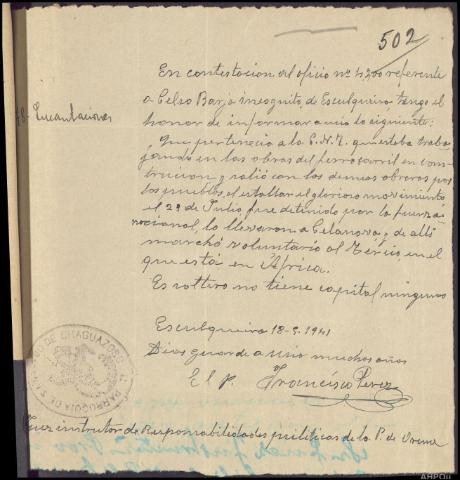 502
En contestacion al oficio nº 4200 referente
18. Incautaciones
a Celso Barja incognito, de Esculqueira tengo el
honor de informar a ucia lo siguiente:
Que pertenecia a la C.N.T. que estaba traba
jando en las obras del ferrocarril en cons
truccion y salió con los demas obreros por
los pueblos, el estallar el glorioso movimiento
el 29 de Julio, fue detinido por la fuerza
nacional, lo llevaron a Celanova y de alli
marchó voluntario al Tércio, en el
que está en Africa.
Es soltero no tiene capital ninguno
Esculqueira 18-3-1941
Dios guarde a usia muchos años
El P. Francisco Perez
PARROQUIA DE CHAGUAZOSO
Juez instrutor de Responsabilidades puliticas de la P. de Orense
AHPOU